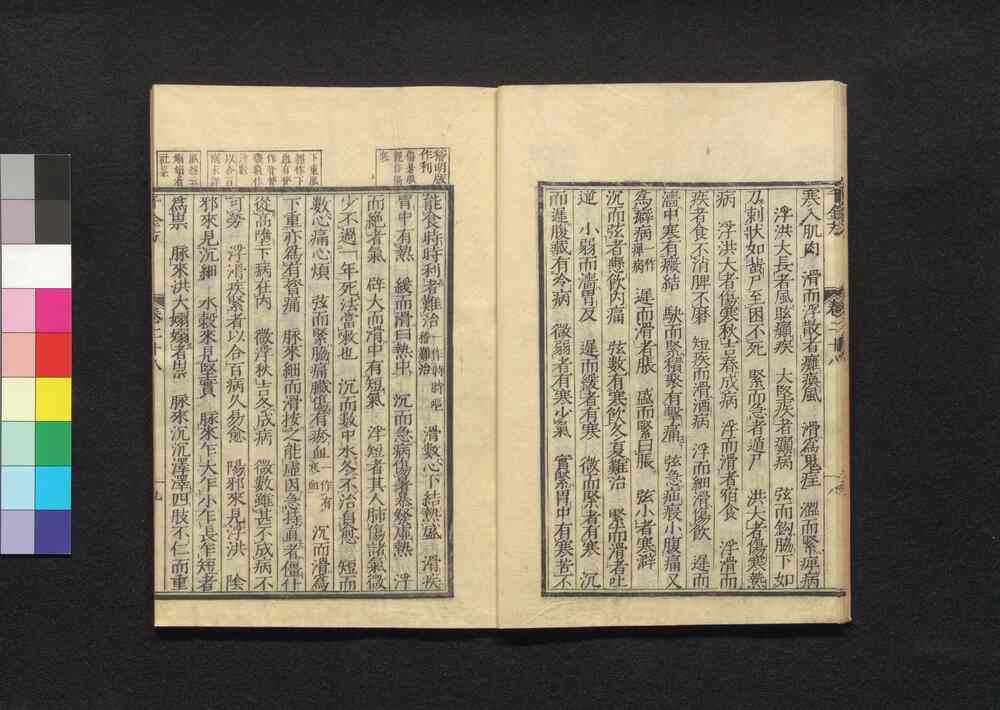 寒入肌肉　滑而浮散者癱瘓風　滑爲鬼疰　濇而緊痺病
浮洪大長者風眩癲疾　大堅疾者癲病　弦而鉤脇下如
刀刺狀如蜚尸至困不死　緊而急者遁尸　洪大者傷寒熱
病　浮洪大者傷寒秋吉春成病　浮而滑者宿食　浮滑而
疾者食不消脾不磨　短疾而滑酒病　浮而細滑傷飲　遲而
濇中寒有癥結　駃而緊積聚有擊痛　弦急疝瘕小腹痛又
爲癖病一作痺病　遲而滑者脹　盛而緊曰脹　弦小者寒澼
沉而弦者懸飲內痛　弦數有寒飲冬夏難治　緊而滑者吐
逆　小弱而濇胃反　遲而緩者有寒　微而緊者有寒　沉
而遲腹藏有冷病　微弱者有寒少氣　實緊胃中有寒苦不
卷二十八
能食時時利者難治　滑數心下結熱盛　滑疾
胃中有熱　緩而滑曰熱中　沉而急病傷暑暴發虛熱　浮
而絶者氣　辟大而滑中有短氣　浮短者其人肺傷諸氣微
少不過一年死法當欬也　沉而數中水冬不治自愈　短而
數心痛心煩　弦而緊脇痛臟傷有瘀血一作有寒血　沉而滑爲
下重亦爲背膂痛　脉來細而滑按之能虛因急持直者僵仆
從高墮下病在內　微浮秋吉冬成病　微數雖甚不成病不
可勞　浮滑疾緊者以合百病久易愈　陽邪來見浮洪　陰
邪來見沉細　水穀來見堅實　脉來乍大乍小乍長乍短者
爲祟　脉來洪大嫋嫋者祟　脉來沉沉澤澤四肢不仁而重
卷二十八
十九